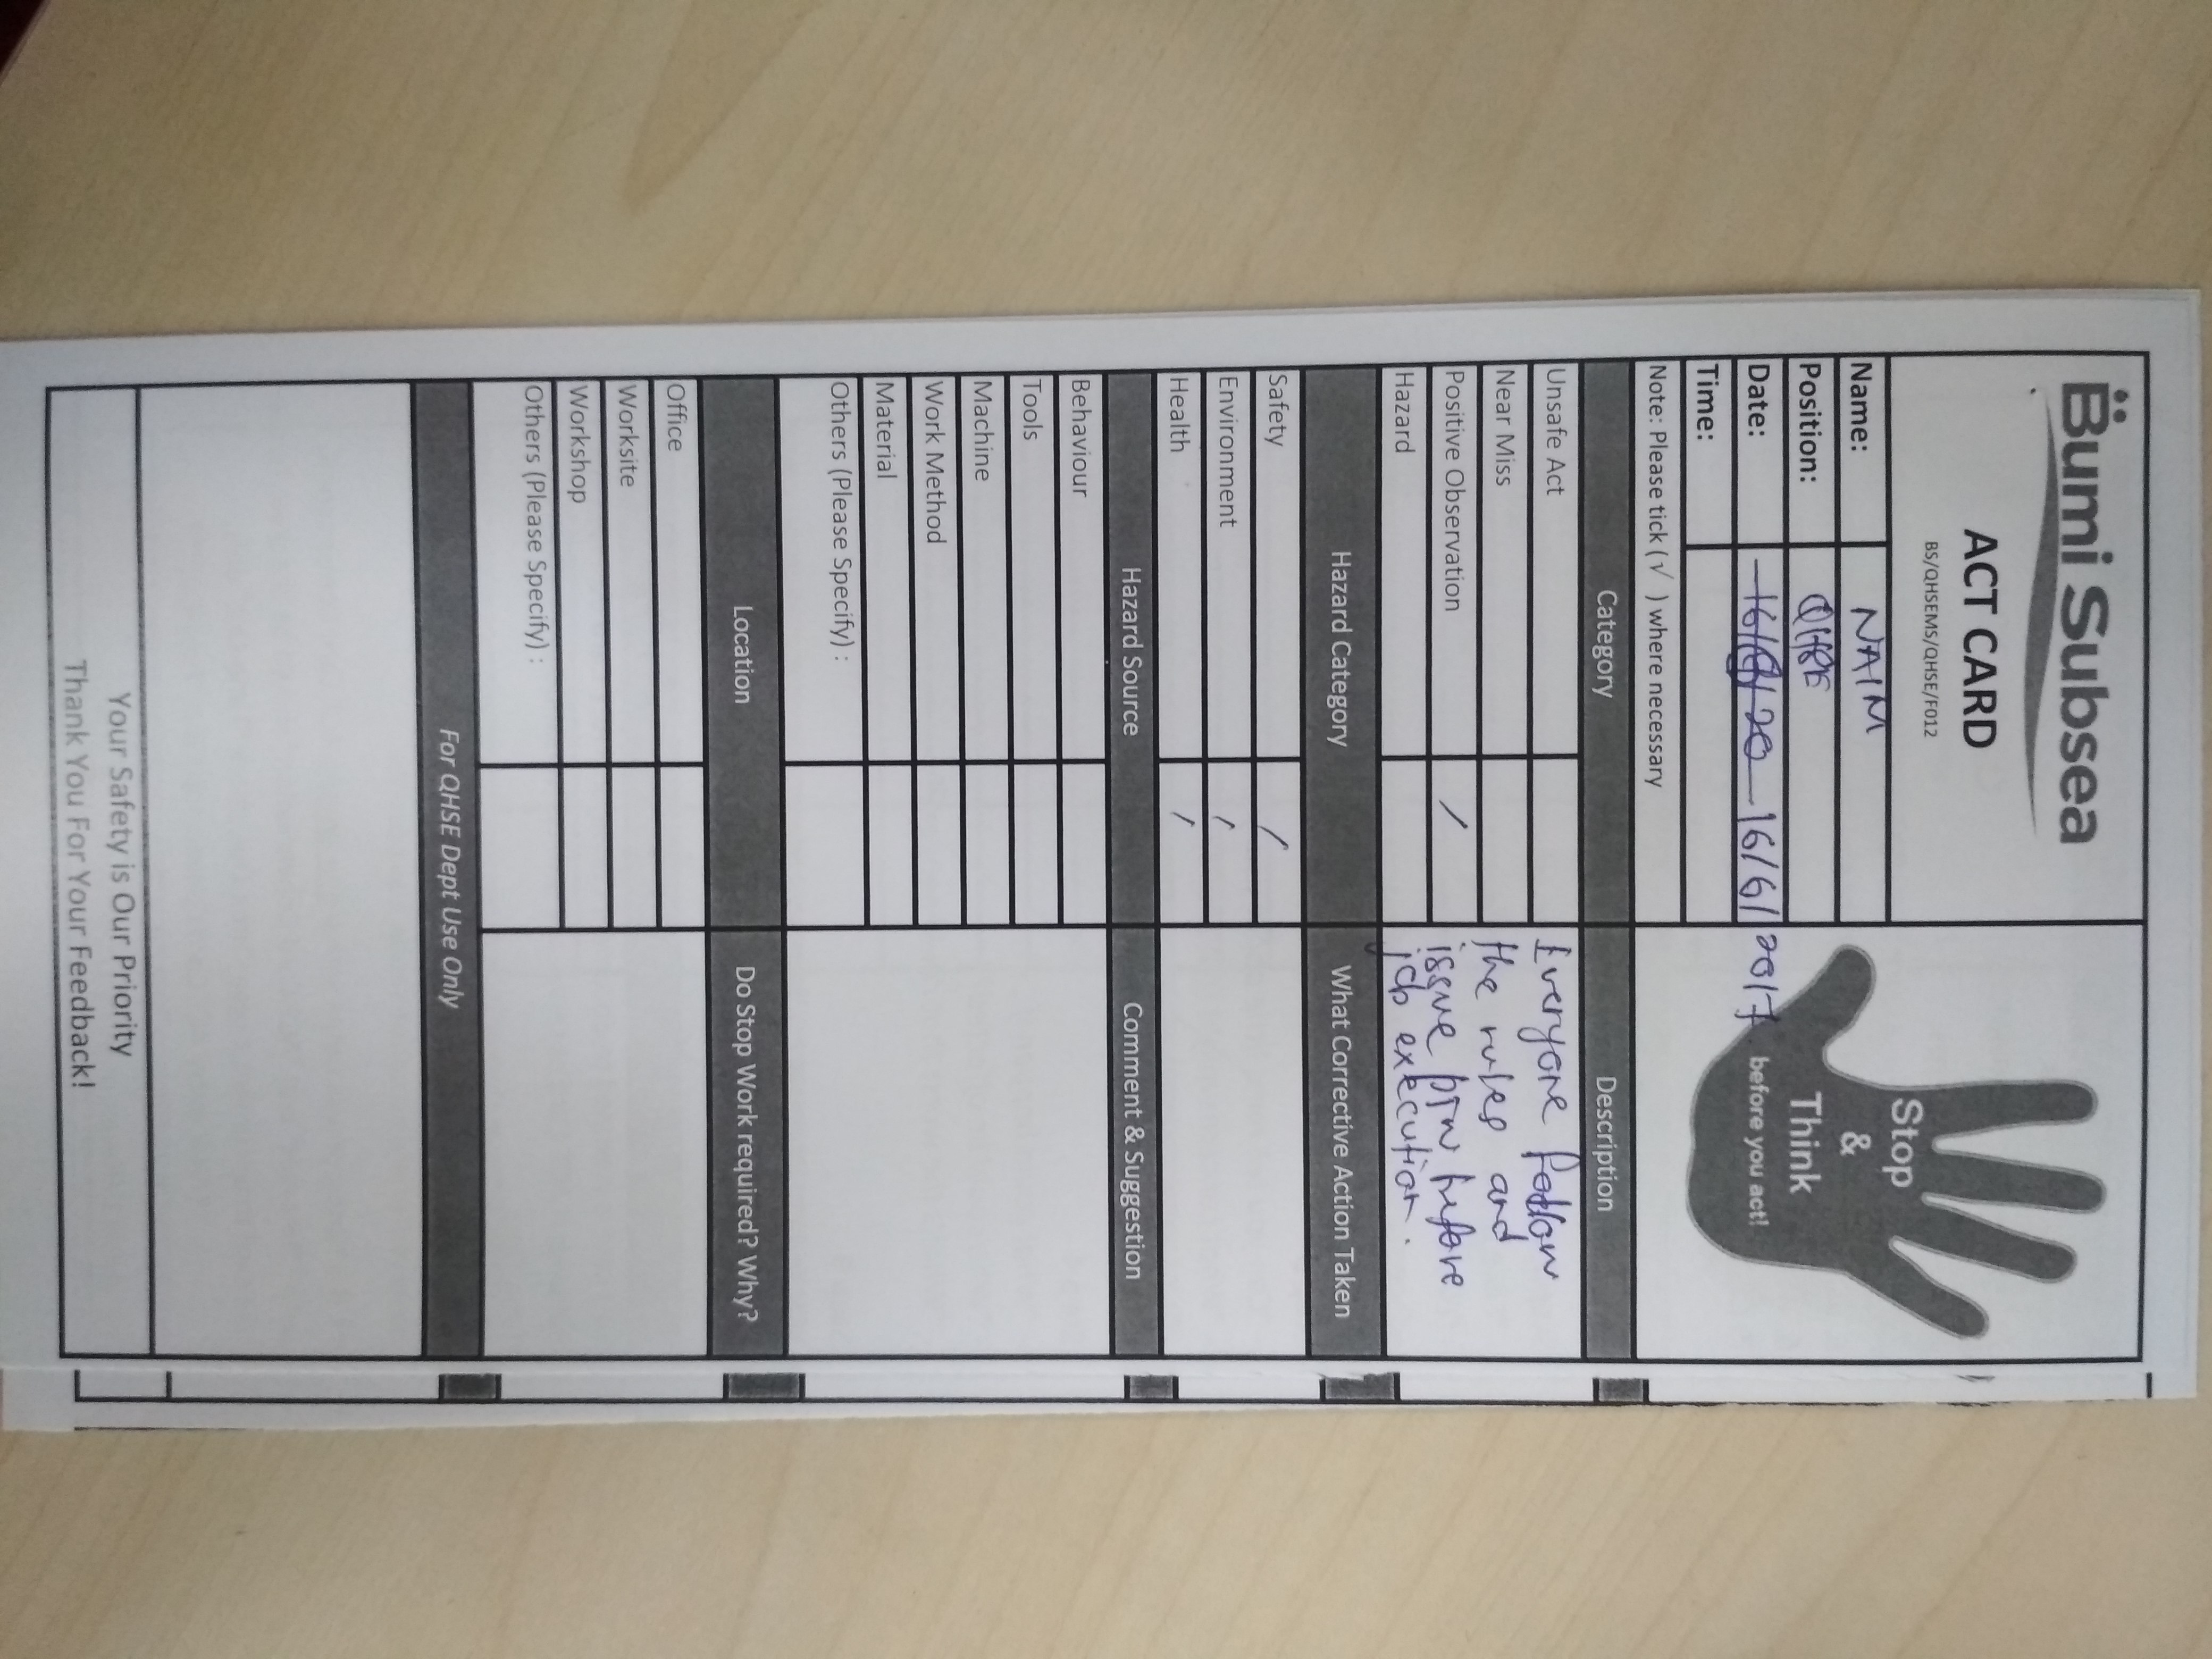 Bumi Subsea
ACT CARD
BS/QHSEMS/QHSE/F012
Stop
&
Think
before you act!
Name: NAIM
Position: QHSE
Date: 16/6/2017
Time:
Note: Please tick ( √ ) where necessary
Category Description
Unsafe Act
Near Miss
Positive Observation /
Hazard
Everyone follow
the rules and
issue PTW before
job execution.
Hazard Category What Corrective Action Taken
Safety /
Environment /
Health /
Hazard Source Comment & Suggestion
Behaviour
Tools
Machine
Work Method
Material
Others (Please Specify) :
Location Do Stop Work required? Why?
Office
Worksite
Workshop
Others (Please Specify) :
For QHSE Dept Use Only
Your Safety is Our Priority
Thank You For Your Feedback!